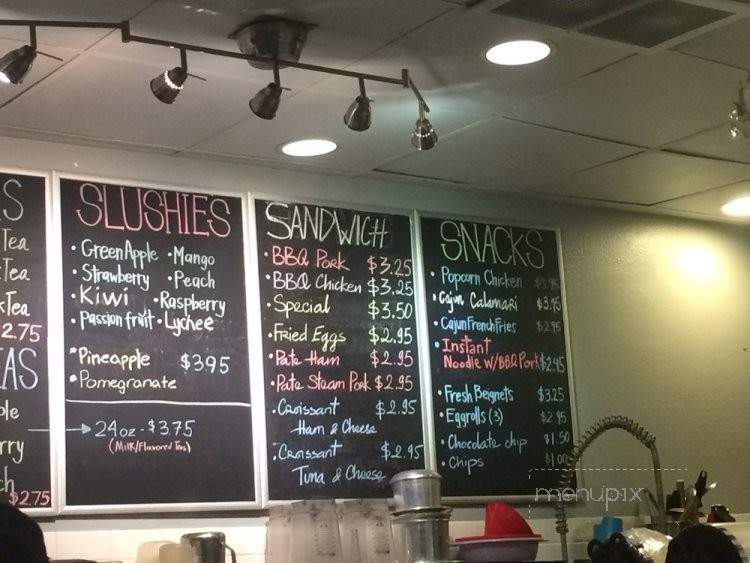 S
Tea
Tea
kTea
2.75
AS
ple
rry
ch
$2.75
SLUSHIES
• Green Apple • Mango
• Strawberry • Peach
• Kiwi • Raspberry
• Passion fruit • Lychee
• Pineapple $3.95
• Pomegranate
24 oz - $3.75
(Milk/Flavored Teas)
SANDWICH
• BBQ Pork $3.25
• BBQ Chicken $3.25
• Special $3.50
• Fried Eggs $2.95
• Pate Ham $2.95
• Pate Steam Pork $2.95
• Croissant $2.95
Ham & Cheese
• Croissant $2.95
Tuna & Cheese
SNACKS
• Popcorn Chicken
• Cajun Calamari $3.95
• Cajun French Fries $2.95
• Instant
Noodle W/BBQ Pork $2.95
• Fresh Beignets $3.25
• Eggrolls (3) $2.95
• Chocolate chip $1.50
• Chips $1.00
menupix